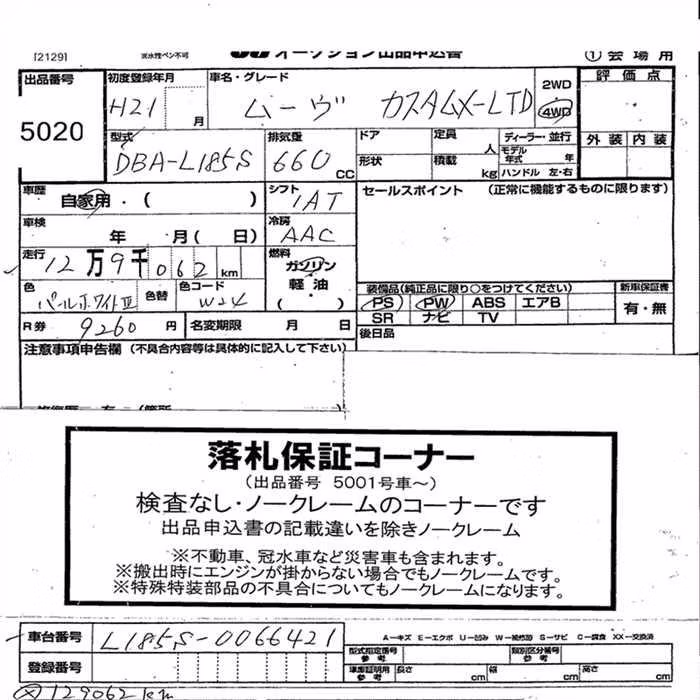 [2129]
流水性ペン不可
オークション出品申込書
① 会場用
出品番号
5020
初度登録年月
H21 月
車名・グレード
ムーヴ カスタムX-LTD
2WD
4WD
評価点
型式
DBA-L185S
排気量
660 CC
ドア
形状
定員 人
積載 kg
ディーラー・並行
モデル年式 年
ハンドル 左・右
外装 内装
車歴
自家用・( )
シフト
IAT
セールスポイント (正常に機能するものに限ります)
車検
年 月( 日)
冷房
AAC
走行
12万9千062 km
燃料
ガソリン
軽油
( )
色
パールホワイトIII
色替
色コード
W24
装備品(純正品に限り○をつけてください)
新車保証書
PS PW ABS エアB
SR ナビ TV
有・無
R券 9260 円
名変期限 月 日
後日品
注意事項申告欄 (不具合内容等は具体的に記入して下さい)
落札保証コーナー
(出品番号 5001号車〜)
検査なし・ノークレームのコーナーです
出品申込書の記載違いを除きノークレーム
※不動車、冠水車など災害車も含まれます。
※搬出時にエンジンが掛からない場合でもノークレームです。
※特殊特装部品の不具合についてもノークレームになります。
車台番号
L185S-0066421
A—キズ E—エクボ U—凹み W—補修跡 S—サビ C—腐食 XX—交換済
型式指定番号
参考
類別区分番号
参考
登録番号
車庫証明用
参考
長さ cm
幅 cm
高さ cm
129062km